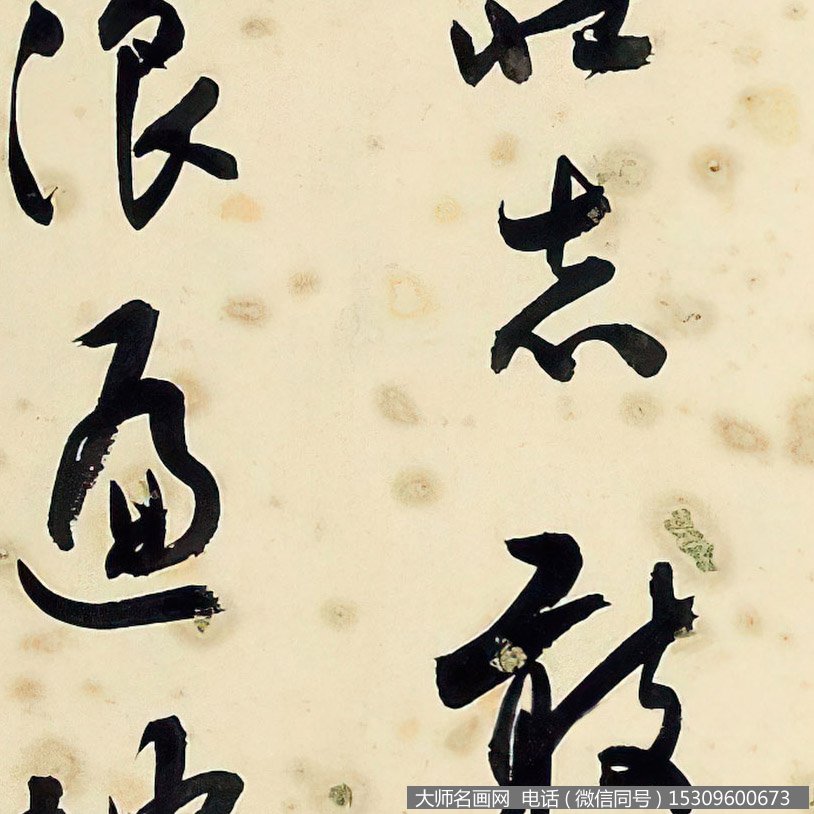 壮志敢
浪遍地
大师名画网 电话（微信同号）15309600673